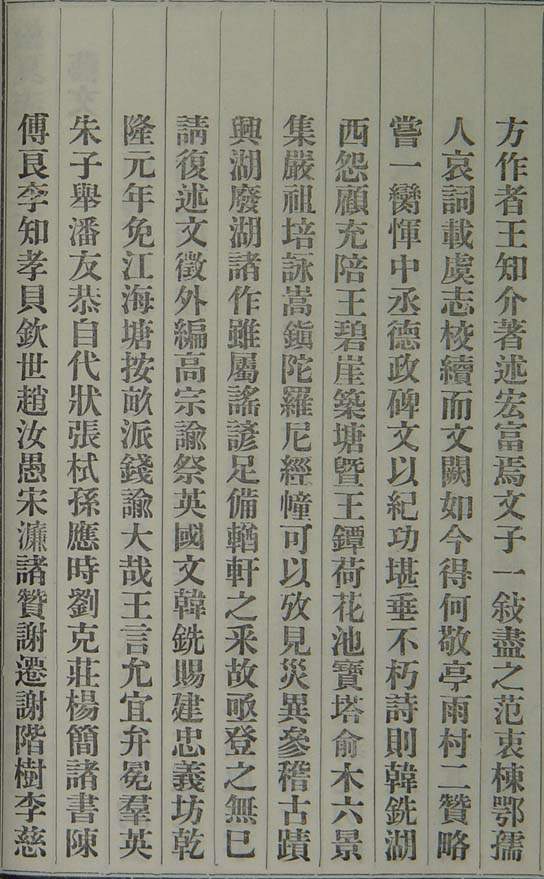 方作者王知介著述宏富焉文子一敍盡之范衷棟鄂孺
人哀詞載虞志校續而文闕如今得何敬亭雨村二贊略
嘗一臠惲中丞德政碑文以紀功堪垂不朽詩則韓銑湖
西怨顧充陪王碧崖築塘曁王鐔荷花池寶塔俞木六景
集嚴祖培詠嵩鎭陀羅尼經幢可以攷見災異參稽古蹟
興湖廢湖諸作雖屬謠諺足備輶軒之釆故亟登之無已
請復述文徵外編高宗諭祭英國文韓銑賜建忠義坊乾
隆元年免江海塘按畝派錢諭大哉王言允宜弁冕羣英
朱子舉潘友恭自代狀張栻孫應時劉克莊楊簡諸書陳
傅良李知孝貝欽世趙汝愚宋濂諸贊謝遷謝階樹李慈